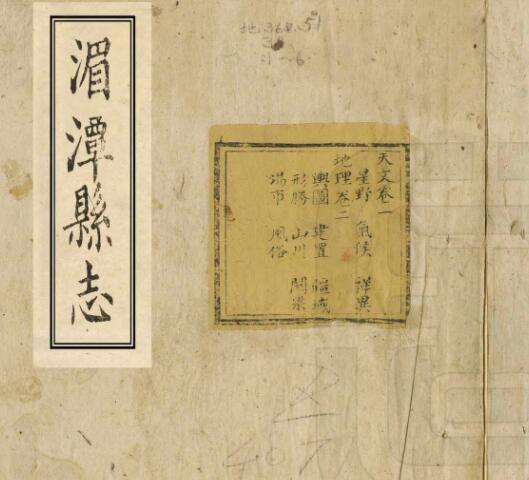 湄潭縣志
地.368.51
天文卷一
星野 氣候 祥異
地理卷二
輿圖 建置 疆域
形勝 山川 關梁
場市 風俗
407